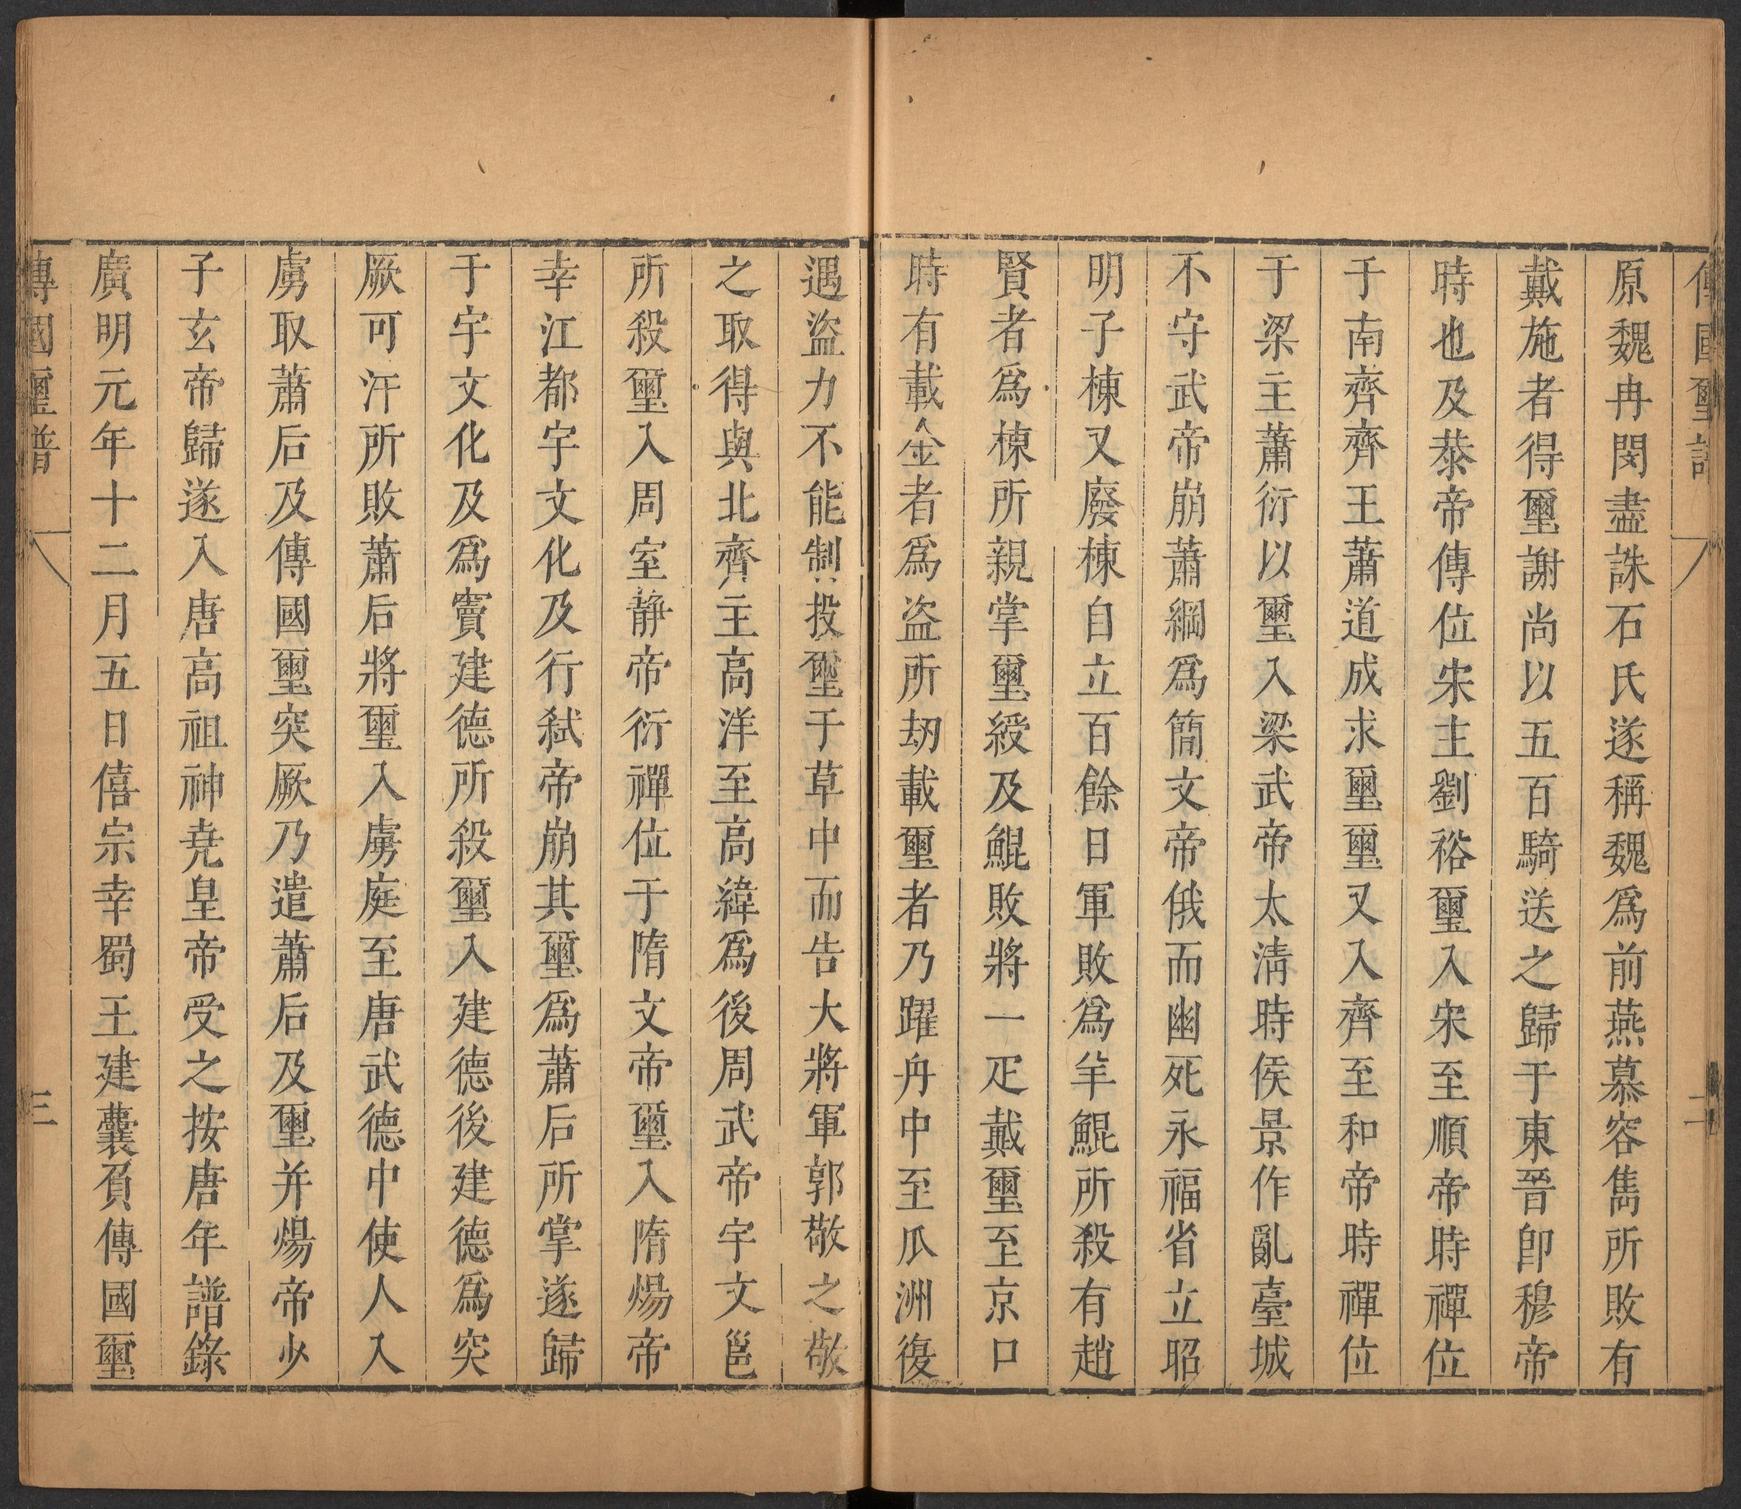 傳國璽譜 二
原魏冉閔盡誅石氏遂稱魏爲前燕慕容雋所敗有
戴施者得璽謝尚以五百騎送之歸于東晉卽穆帝
時也及恭帝傳位宋主劉裕璽入宋至順帝時禪位
于南齊齊王蕭道成求璽璽又入齊至和帝時禪位
于梁主蕭衍以璽入梁武帝太淸時侯景作亂臺城
不守武帝崩蕭綱爲簡文帝俄而幽死永福省立昭
明子棟又廢棟自立百餘日軍敗爲羊鯤所殺有趙
賢者爲棟所親掌璽綬及鯤敗將一疋戴璽至京口
時有載金者爲盜所劫載璽者乃躍舟中至瓜洲復
遇盜力不能制投璽于草中而告大將軍郭敬之敬
之取得與北齊主高洋至高緯爲後周武帝宇文邕
所殺璽入周室靜帝衍禪位于隋文帝璽入隋煬帝
幸江都宇文化及行弑帝崩其璽爲蕭后所掌遂歸
于宇文化及爲竇建德所殺璽入建德後建德爲突
厥可汗所敗蕭后將璽入虜庭至唐武德中使人入
虜取蕭后及傳國璽突厥乃遣蕭后及璽并煬帝少
子玄帝歸遂入唐高祖神堯皇帝受之按唐年譜錄
廣明元年十二月五日僖宗幸蜀王建囊負傳國璽
傳國璽譜 三